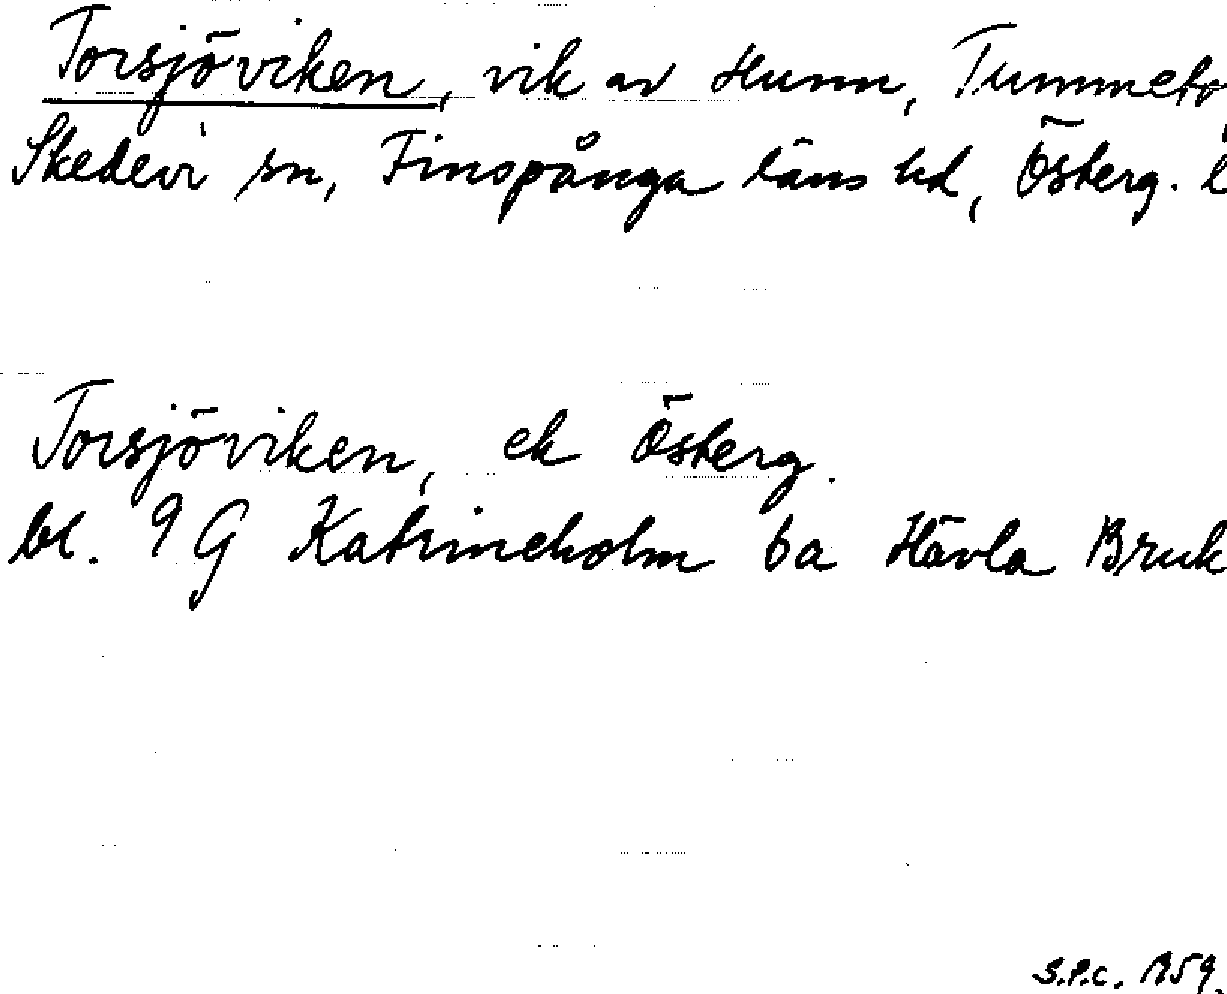 Torsjöviken, vik av Hunn, Tummeto,
Skedevi sn, Finspånga läns hd, Österg. l
Torsjöviken, ek Österg.
bl. 9G Katrineholm 6a Hävla Bruk
S.P.C. 1959.